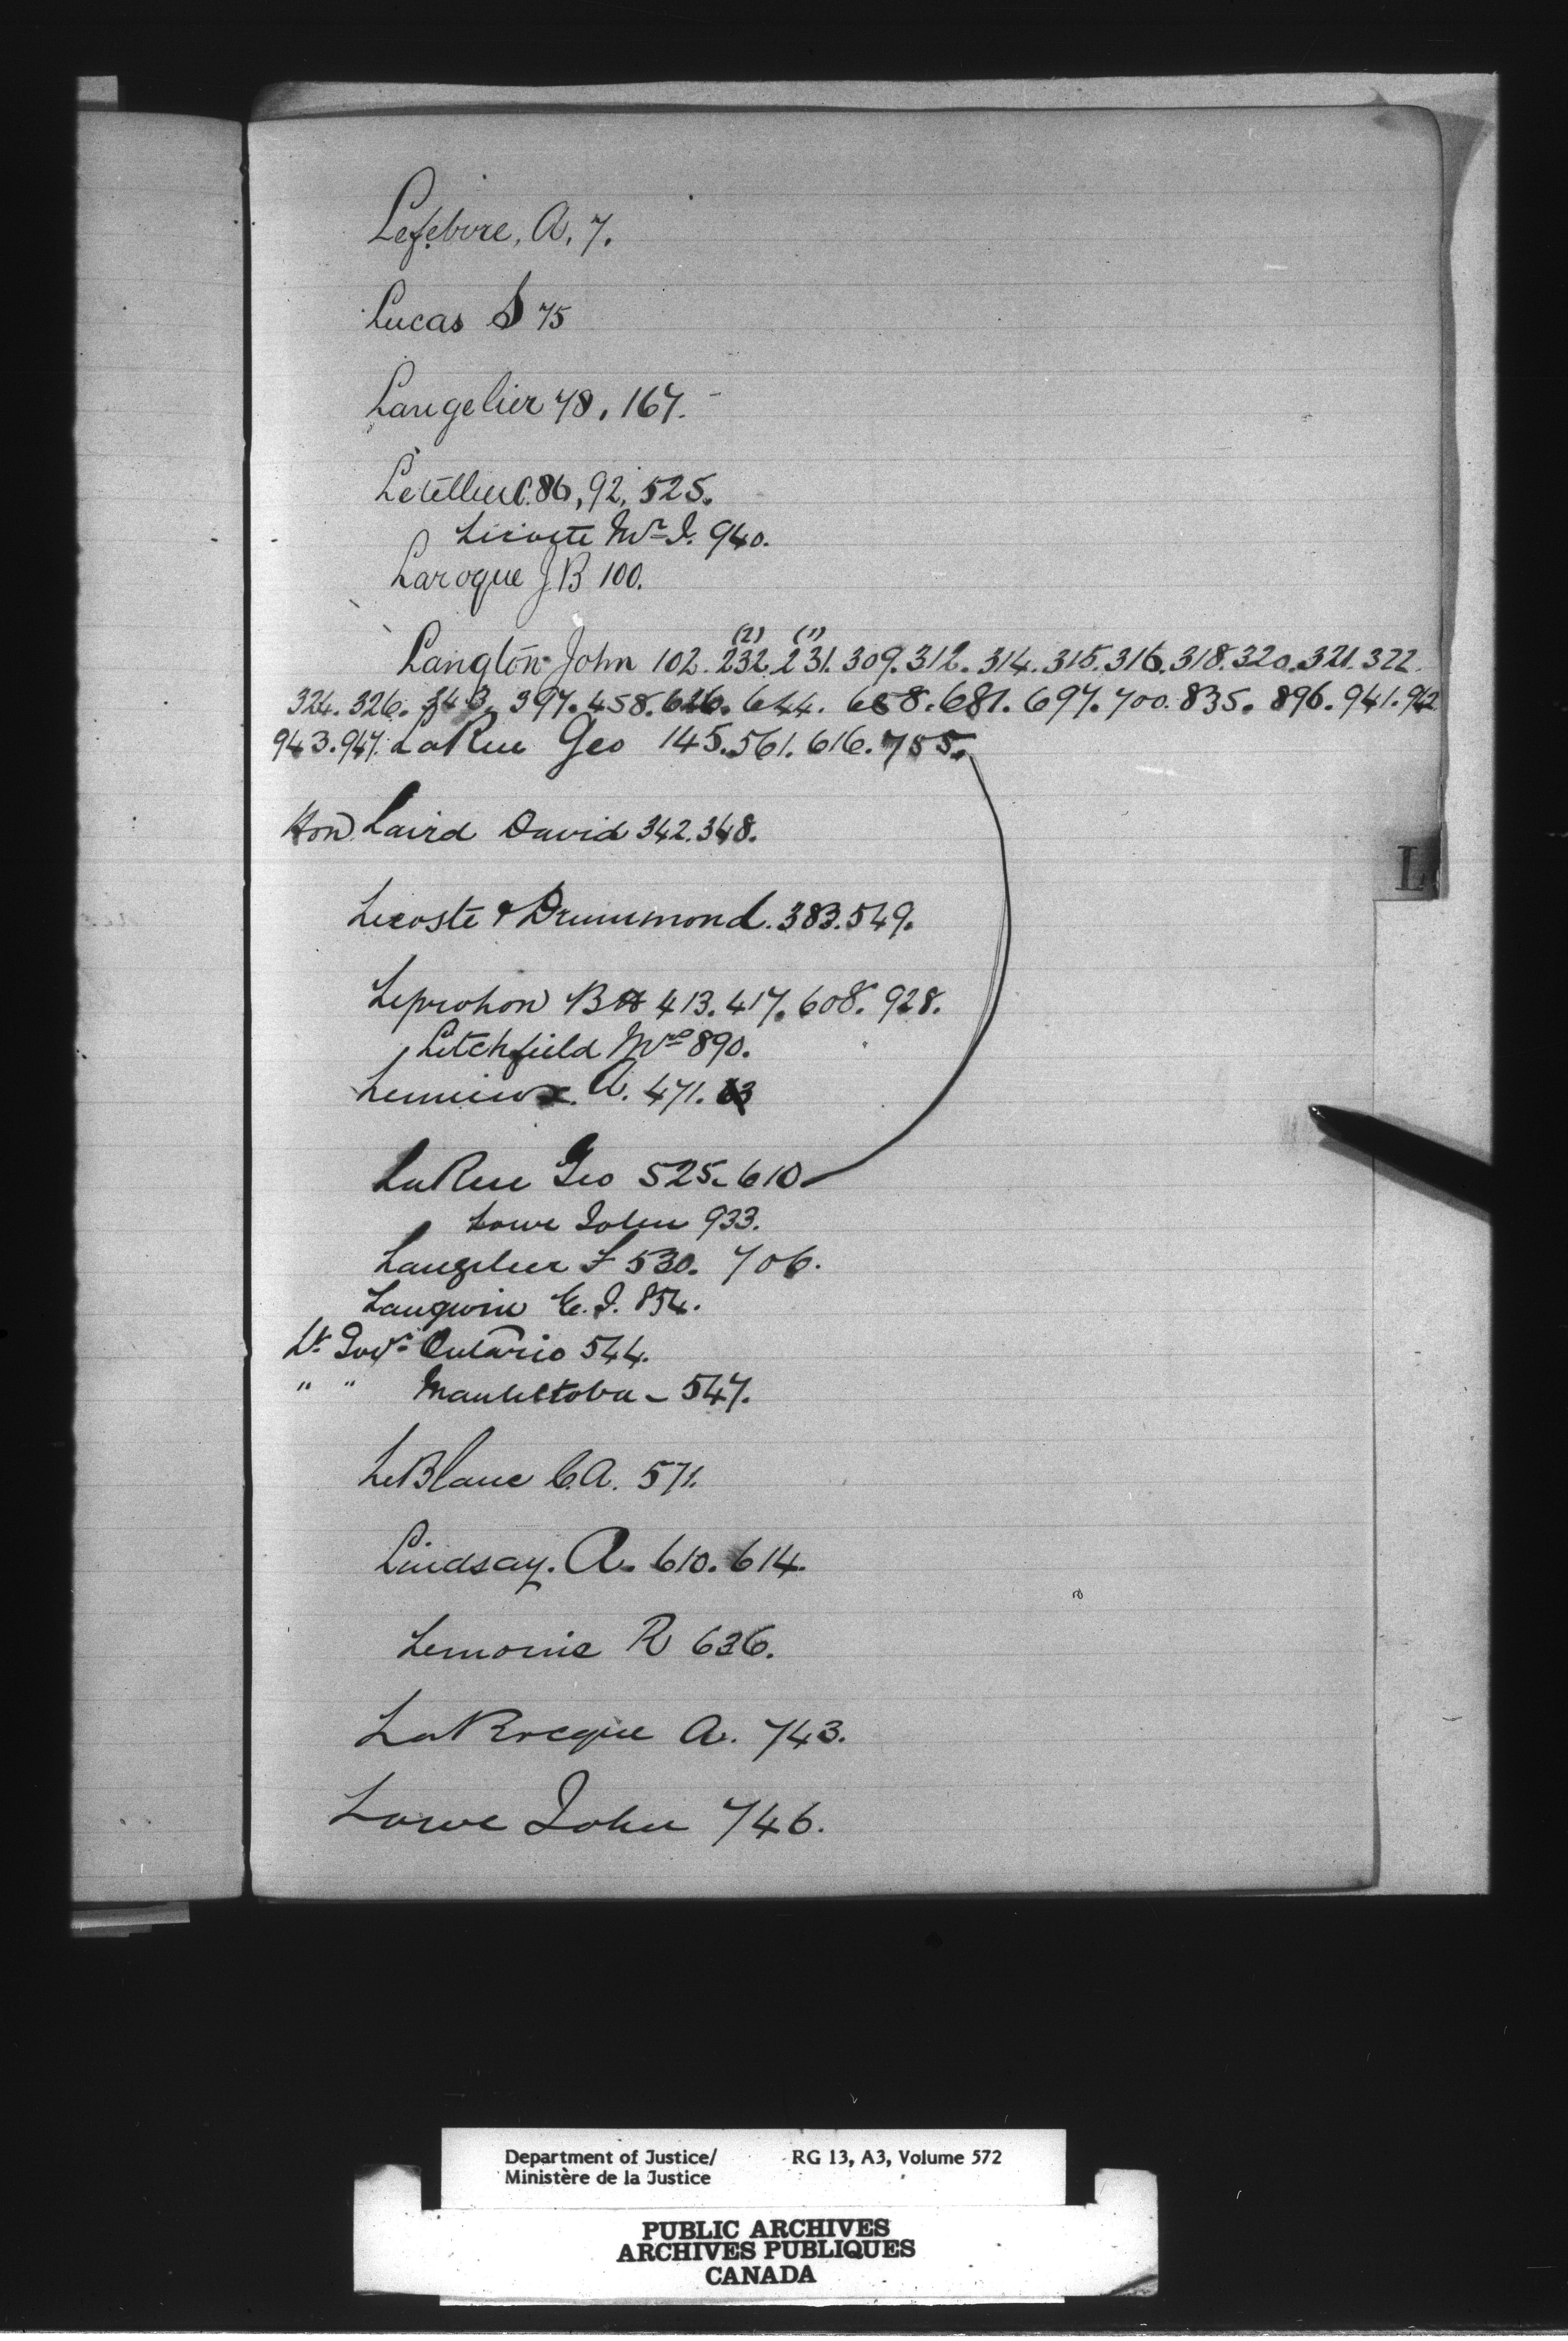 Lefebvre, A, 7.
Lucas S 75
Langelier 78, 167.
Letellier C. 86, 92, 525.
Licoste Mr I. 940.
Laroque J B 100.
(2) (1)
Langton John 102. 232. 231. 309. 312. 314. 315. 316. 318. 320. 321. 322
324. 326. 343. 397. 458. 626. 644. 658. 681. 697. 700. 835. 896. 941. 942
943. 947. LaRue Geo 145. 561. 616. 755.
Hon Laird David 342. 348.
L
Licoste & Drummond. 383. 549.
Leprohon B H 413. 417. 608. 928.
Litchfield Mrs 890.
Lemieux. A. 471.
LaRue Geo 525. 610
Lowe John 933.
Langelier F 530. 706.
Langwin E. I. 854.
Lt. Govr. Ontario 544.
" " Manitoba - 547.
LeBlanc C. A. 571.
Lindsay. A. 610. 614.
Lemoine R 636.
LaRocque A. 743.
Lowe John 746.
Department of Justice/ RG 13, A3, Volume 572
Ministère de la Justice
PUBLIC ARCHIVES
ARCHIVES PUBLIQUES
CANADA